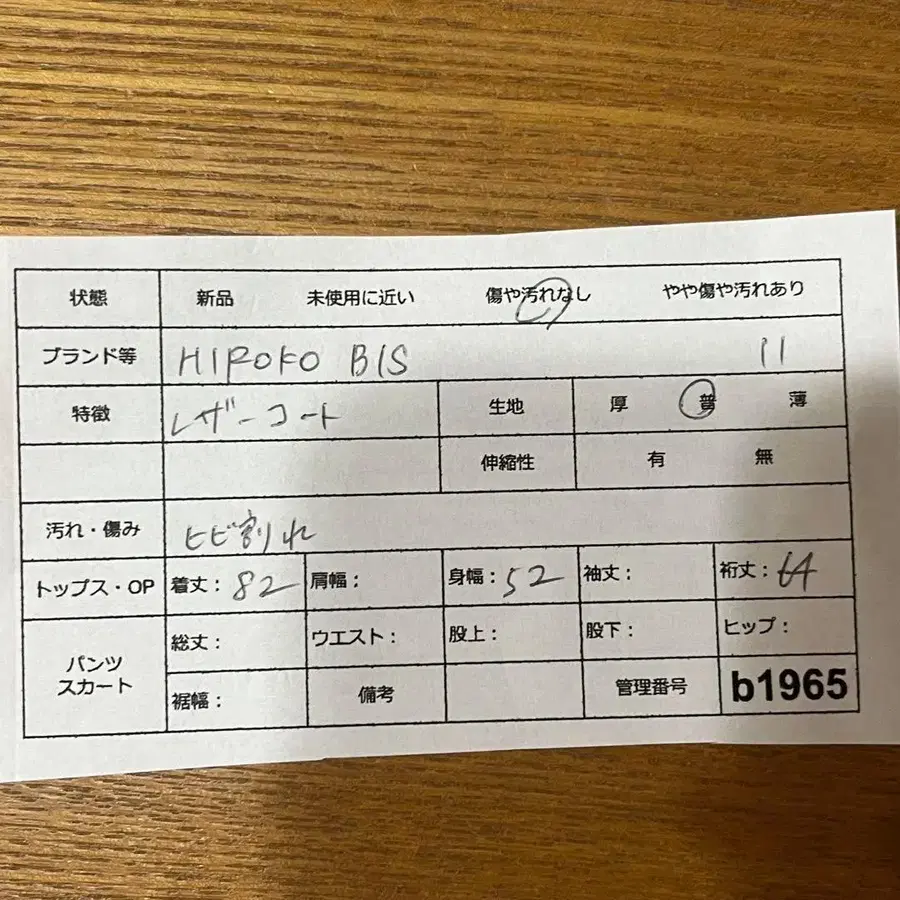 状態 新品 未使用に近い 傷や汚れなし やや傷や汚れあり
ブランド等 HIROKO BIS 11
特徴 レザーコート 生地 厚 普 薄
伸縮性 有 無
汚れ・傷み ヒビ割れ
トップス・OP 着丈：82 肩幅： 身幅：52 袖丈： 裄丈：64
パンツ スカート 総丈： ウエスト： 股上： 股下： ヒップ：
裾幅： 備考 管理番号 b1965